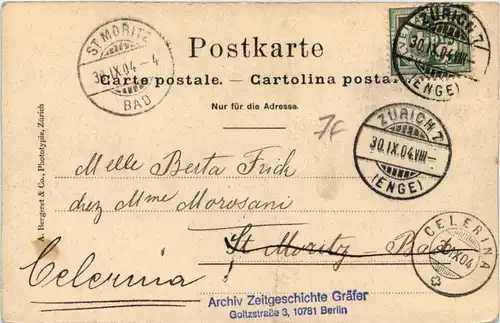 ST. MORITZ
30.IX.04.-4
BAD
Postkarte
Carte postale. — Cartolina posta
Nur für die Adresse.
ZÜRICH 7
30.IX.04.VIII
(ENGE)
ZÜRICH 7
30.IX.04.VIII–
(ENGE)
7f
A. Bergeret & Co., Phototypie, Zürich
Melle Berta Frick
chez Mme Morosani
St Moritz - Bad
Celerina
CELERINA
30.IX.04
Archiv Zeitgeschichte Gräfer
Goltzstraße 3, 10781 Berlin